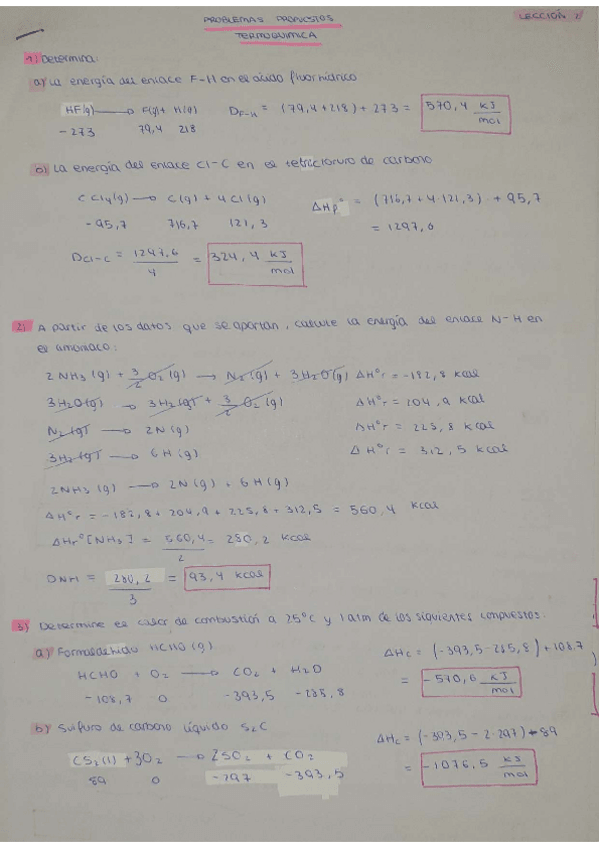 PROBLEMAS PROPUESTOS
LECCIÓN 1
TERMOQUIMICA
1) Determina:
a) La energía del enlace F-H en el ácido fluorhídrico
HF(g) → F(g) + H(g) D_F-H = (79,4 + 218) + 273 = 570,4 kJ/mol
-273 79,4 218
b) La energía del enlace Cl-C en el tetracloruro de carbono
CCl4(g) → C(g) + 4Cl(g) ΔHr° = (716,7 + 4·121,3) + 95,7
-95,7 716,7 121,3 = 1297,6
D_Cl-C = 1297,6/4 = 324,4 kJ/mol
2) A partir de los datos que se aportan, calcule la energía del enlace N-H en
el amoniaco:
2 NH3 (g) + 3/2 O2 (g) → N2(g) + 3H2O(g) ΔH°r = -182,8 kcal
3H2O(g) → 3H2(g) + 3/2 O2 (g) ΔH°r = 204,9 kcal
N2(g) → 2N(g) ΔH°r = 225,8 kcal
3H2(g) → 6H(g) ΔH°r = 312,5 kcal
2NH3 (g) → 2N(g) + 6H(g)
ΔH°r = -182,8 + 204,9 + 225,8 + 312,5 = 560,4 kcal
ΔHr°[NH3] = 560,4/2 = 280,2 kcal
DNH = 280,2/3 = 93,4 kcal
3) Determine el calor de combustión a 25°C y 1 atm de los siguientes compuestos:
a) Formaldehido HCHO(g) ΔHc = (-393,5 - 285,8) + 108,7
HCHO + O2 → CO2 + H2O = -570,6 kJ/mol
-108,7 0 -393,5 -285,8
b) Sulfuro de carbono líquido S2C ΔHc = (-393,5 - 2·297) - 89
CS2(l) + 3O2 → 2SO2 + CO2 = -1076,5 kJ/mol
89 0 -297 -393,5